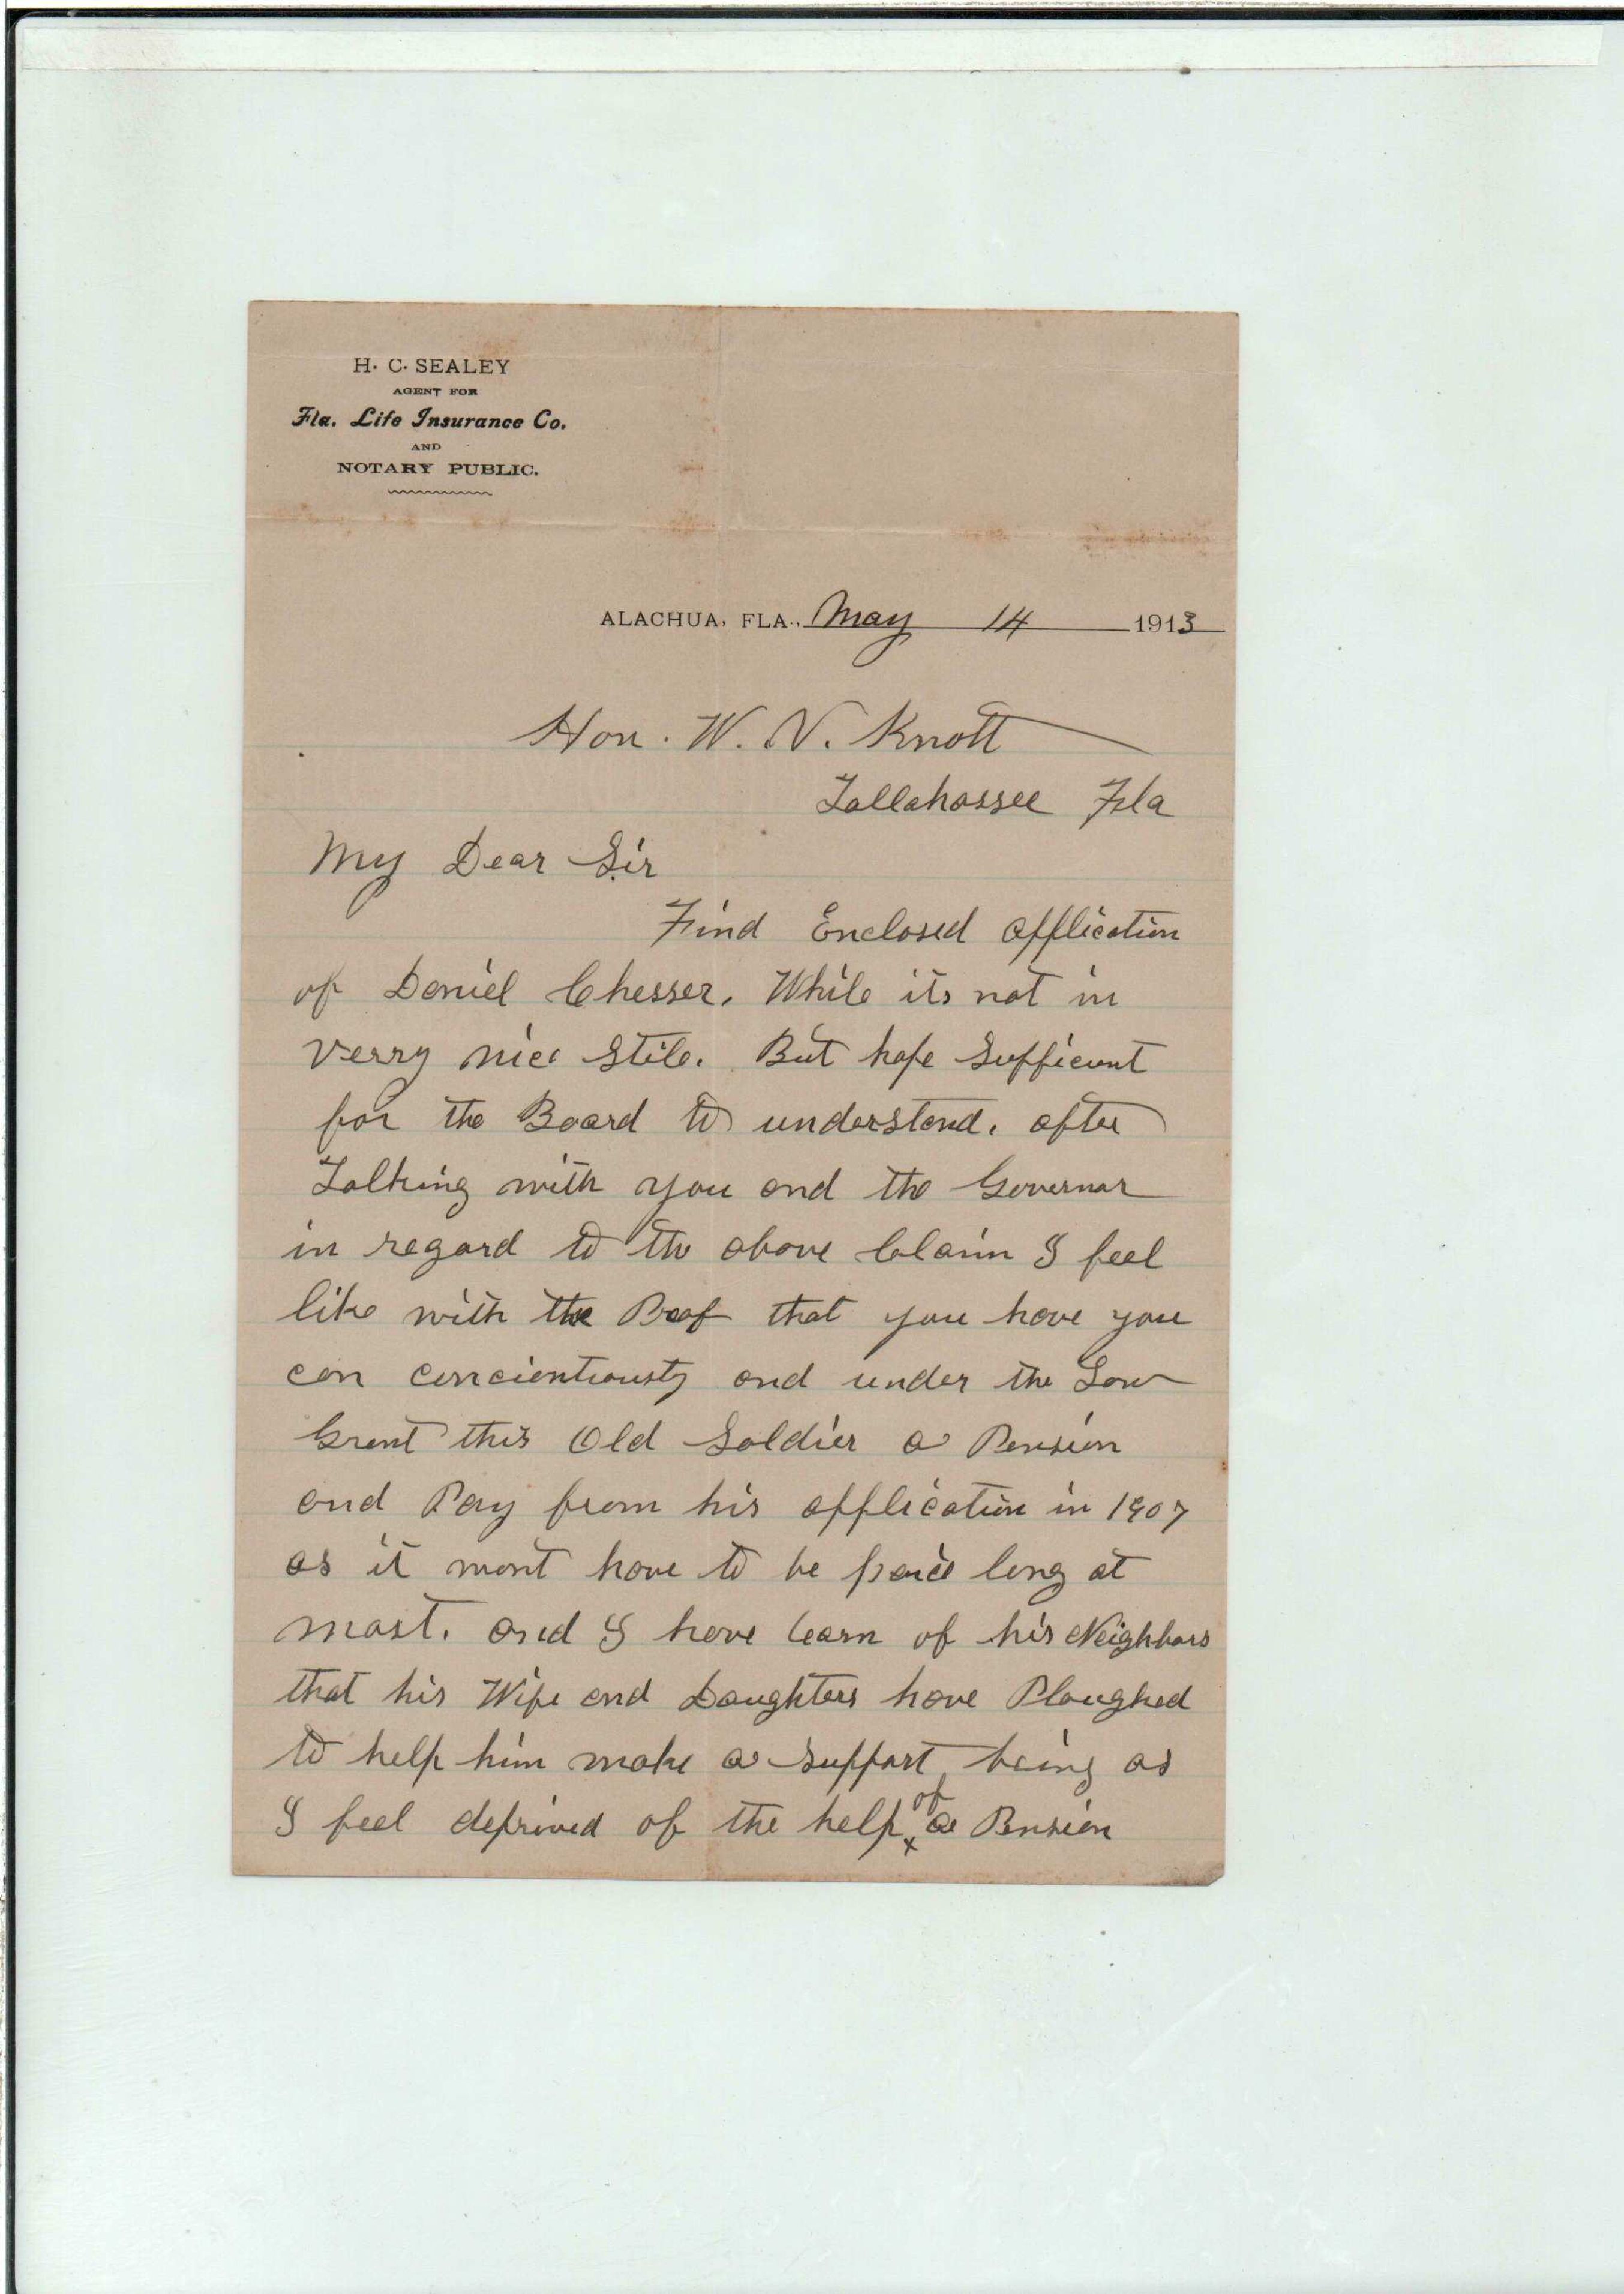 H. C. SEALEY
AGENT FOR
Fla. Life Insurance Co.
AND
NOTARY PUBLIC.
ALACHUA, FLA., May 14 1913
Hon. W. V. Knott
Tallahassee Fla
My Dear Sir
Find Enclosed application
of Daniel Chesser. While its not in
verry nice Stile. But hope Sufficunt
for the Board to understand. after
Talking with you and the Governor
in regard to the above Claim I feel
like with the Proof that you have you
can concientiously and under the Law
Grant this Old Soldier a Pension
and Pay from his application in 1907
as it wont have to be paid long at
most. and I have learn of his Neighbors
that his Wife and Daughters have Ploughed
to help him make a support, being as
I feel deprived of the help of a Pension